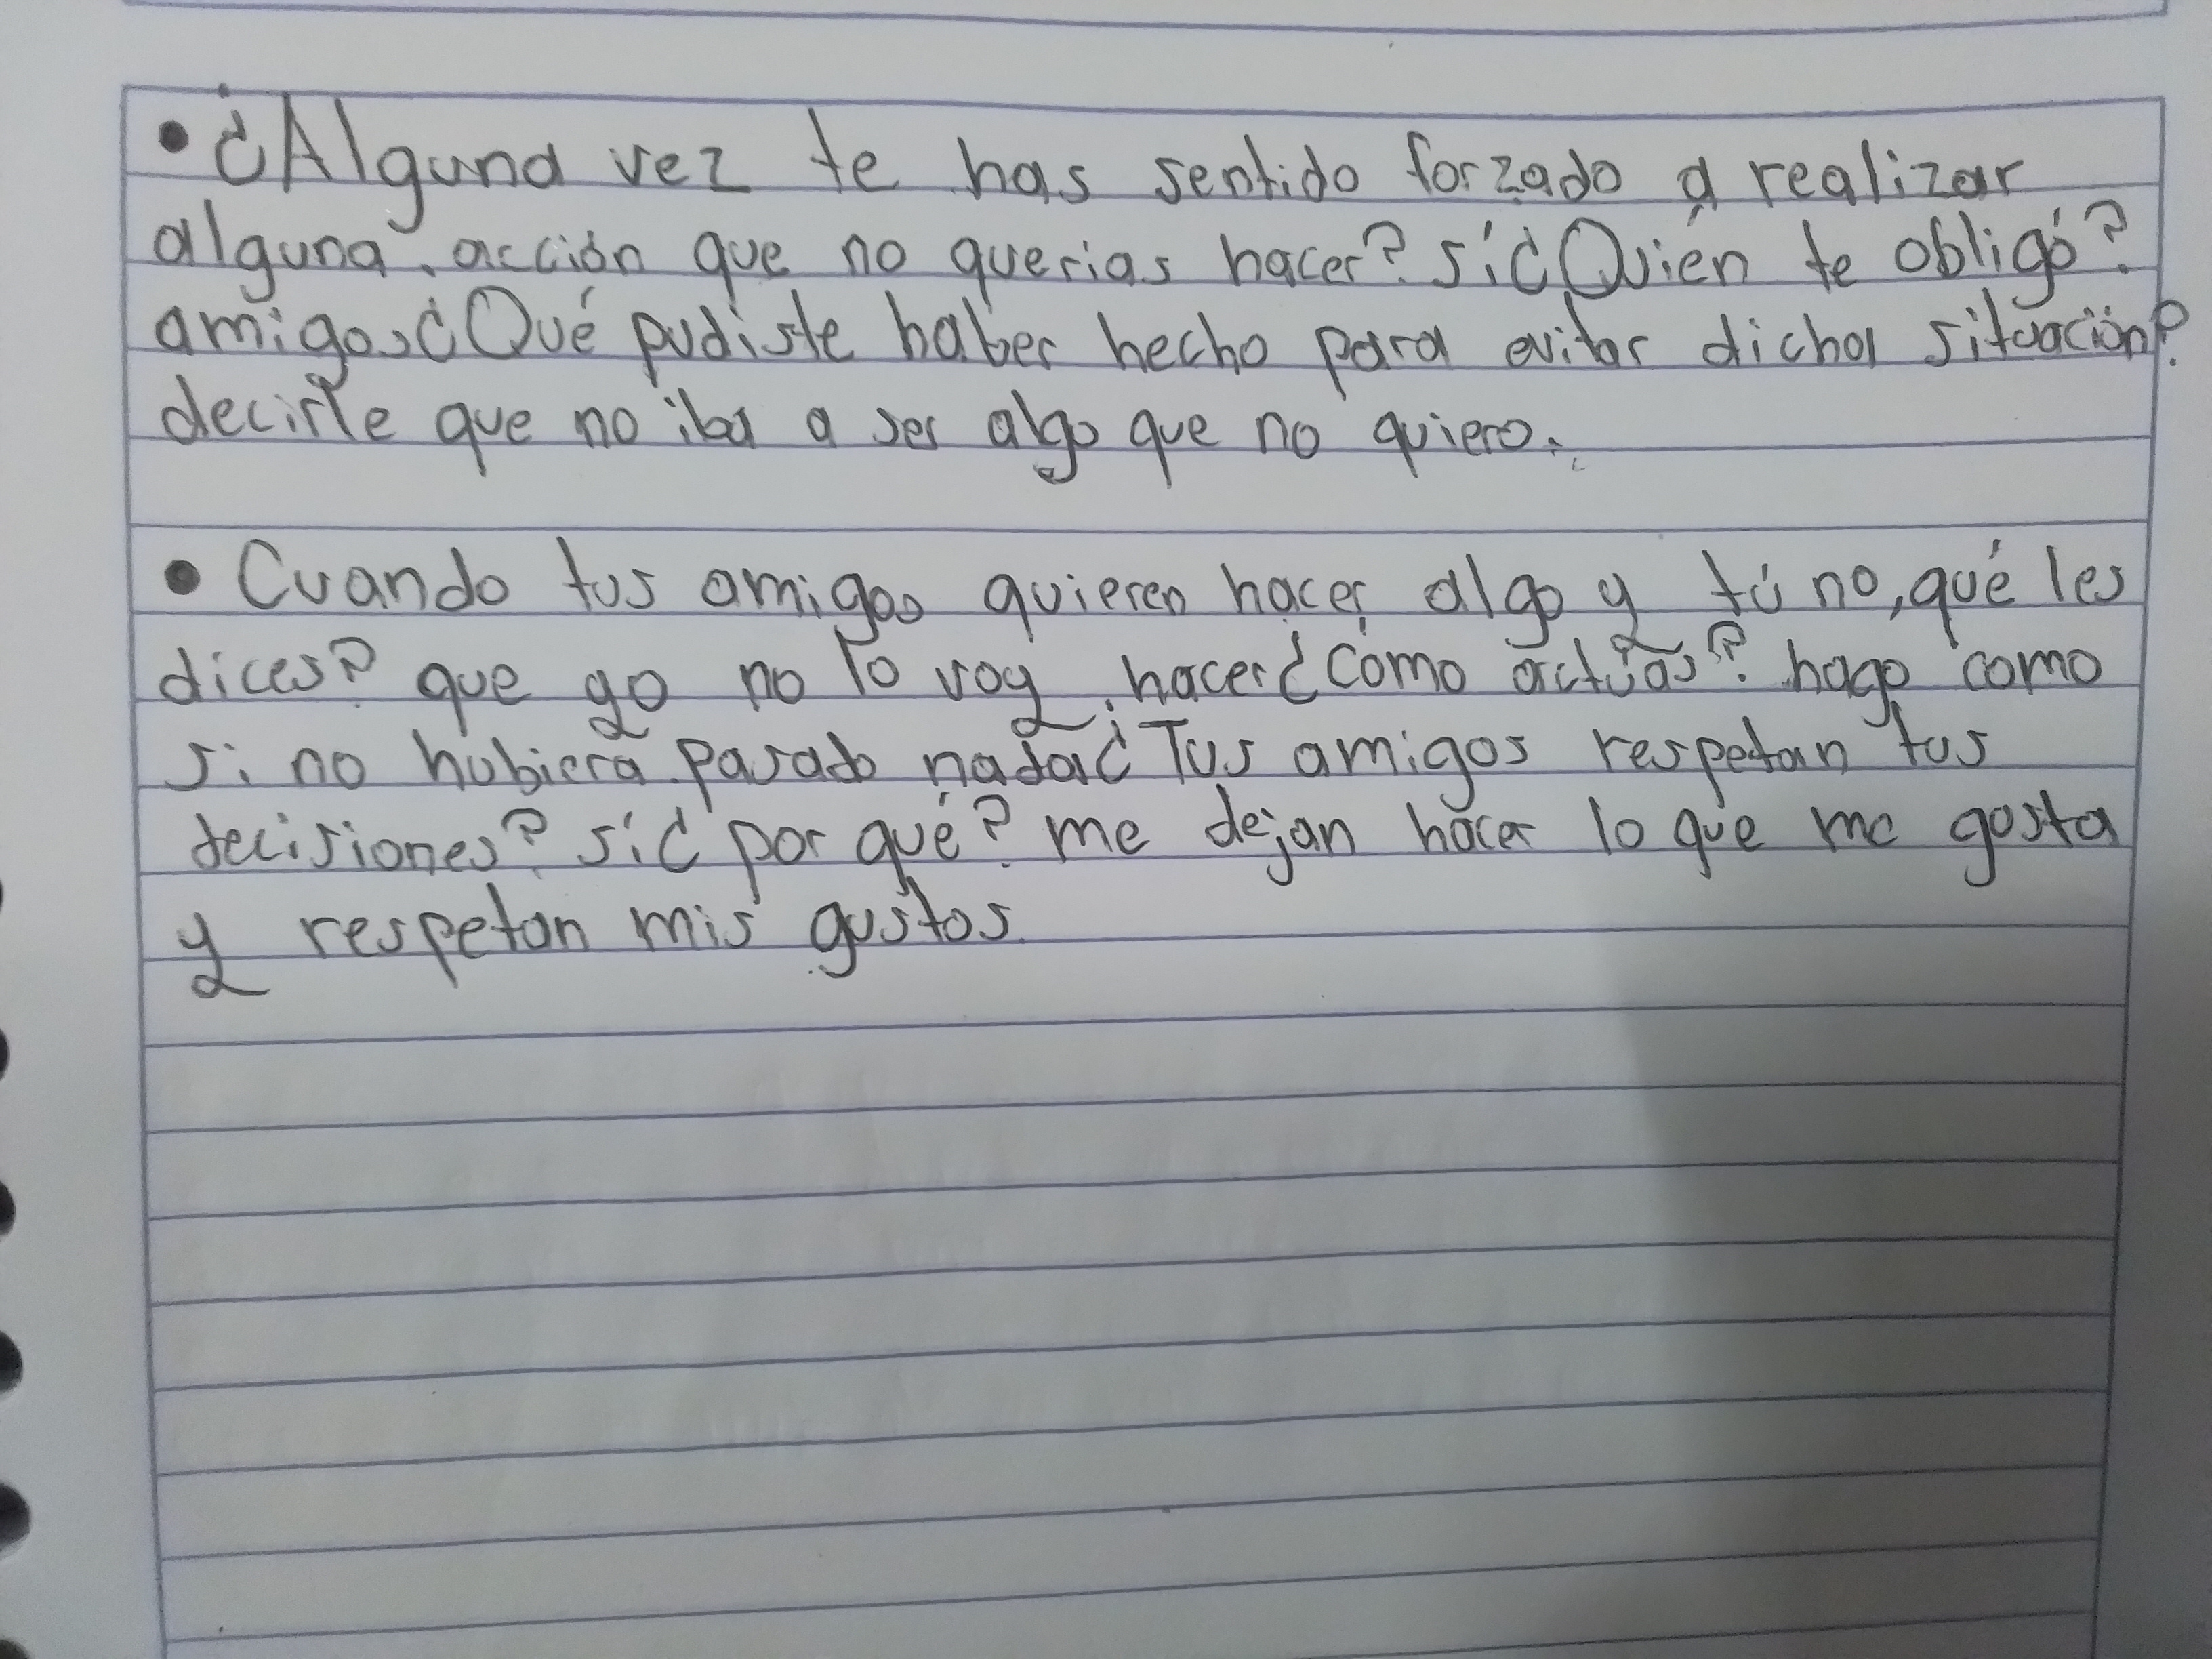 • ¿Alguna vez te has sentido forzado a realizar
alguna acción que no querias hacer? sí ¿Quién te obligó?
amigos ¿Qué pudiste haber hecho para evitar dicha situación?
decirle que no iba a ser algo que no quiero.
• Cuando tus amigos quieren hacer algo y tú no, qué les
dices? que yo no lo voy hacer ¿como actúas? hago como
si no hubiera pasado nada ¿Tus amigos respetan tus
decisiones? sí ¿por qué? me dejan hacer lo que me gosta
y respetan mis gustos